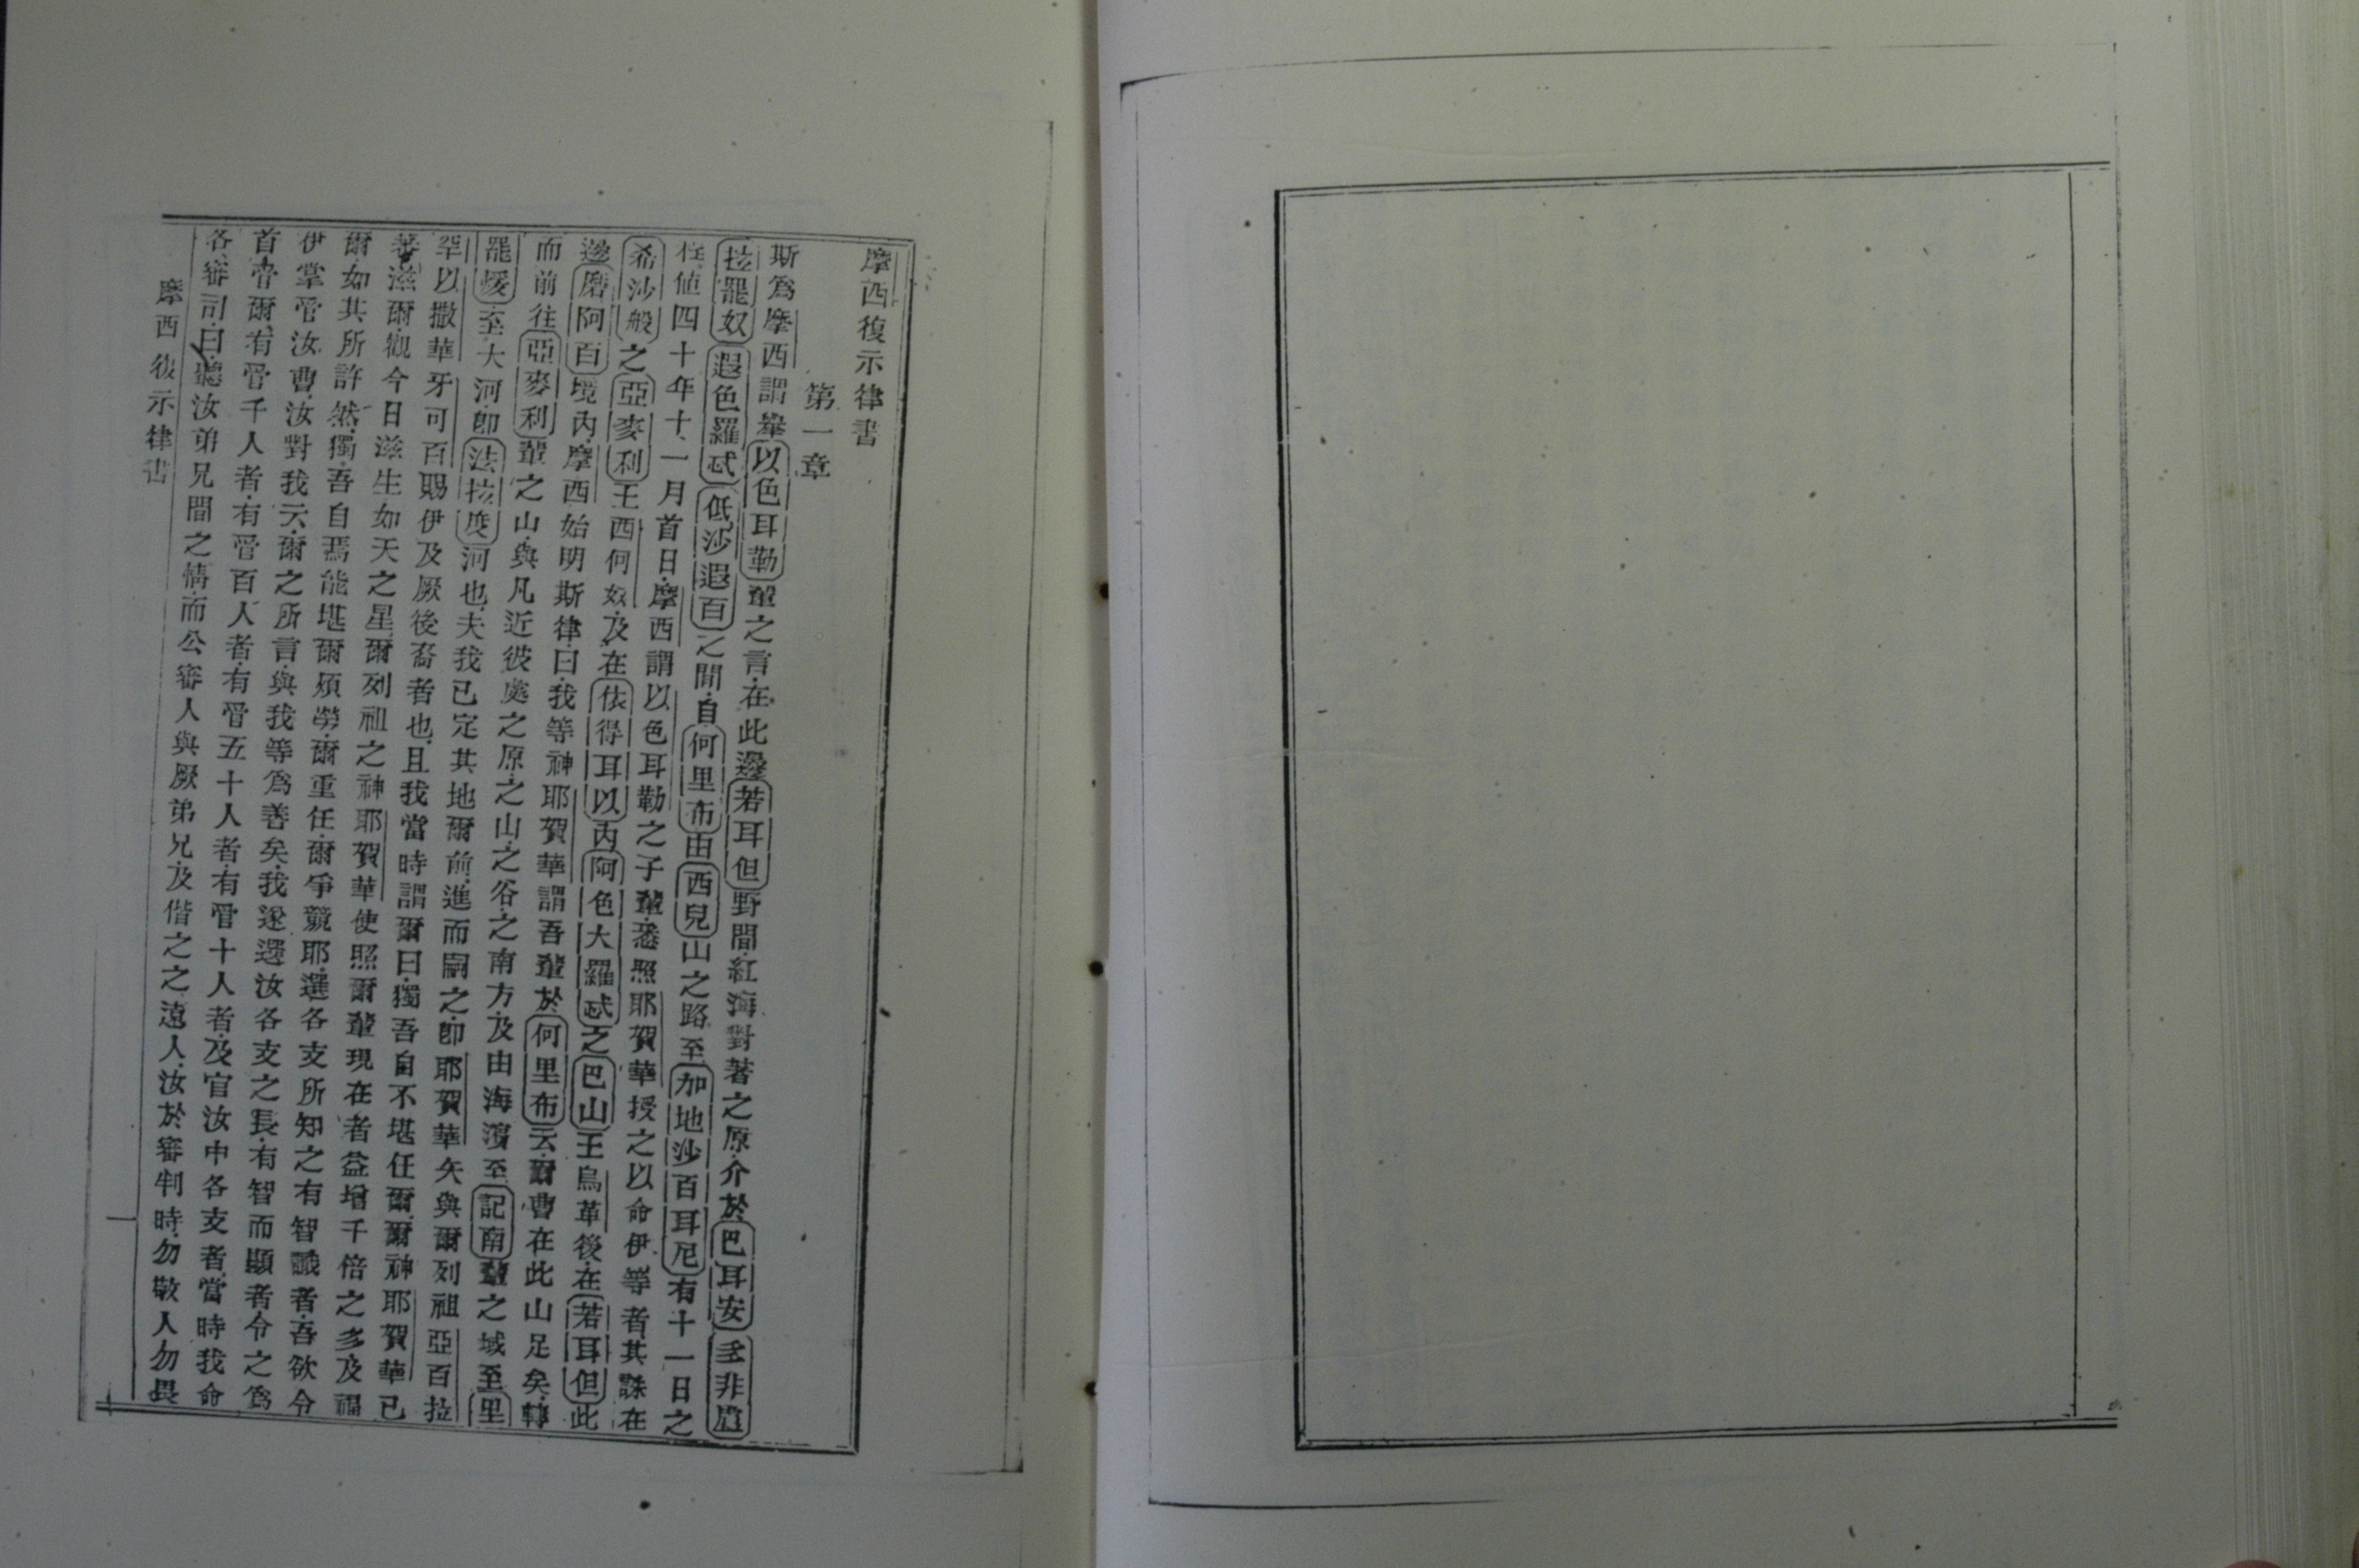 摩西復示律書
第一章
斯爲摩西謂舉以色耳勒輩之言·在此邊若耳但野間·紅海對著之原·介於巴耳安 非
拉罷奴 遐色羅忒 低沙遐百之間·自何里布由西兒山之路·至加地沙百耳尼有十一日之
徃·値四十年十一月首日·摩西謂以色耳勒之子輩·悉照耶賀華授之以命伊等者·其誅在
希沙般之亞麥利王西何奴·及在依得耳以丙阿色大羅忒之巴山王烏革後·在若耳但此
邊磨阿百境內·摩西始明斯律·曰·我等神耶賀華謂吾輩於何里布云·爾曹在此山足矣·轉
而前往亞麥利輩之山·與凡近彼處之原·之山·之谷·之南方·及由海濱至記南輩之域·至里
罷㜝·至大河·卽法拉度河也·夫我已定其地爾前·進而嗣之·卽耶賀華矢與爾列祖亞百拉
罕以撒華牙可百賜伊及厥後裔者也·且我當時謂爾曰·獨吾自不堪任爾·爾神耶賀華已
蕃滋爾·觀今日滋生如天之星·爾列祖之神耶賀華使照爾輩現在者益增千倍之多·及福
爾·如其所許然·獨吾自焉能堪爾煩勞·爾重任·爾爭競耶·選各支所知之有智識者·吾欲令
伊掌管汝曹·汝對我云·爾之所言·與我等爲善矣·我遂選汝各支之長·有智而顯者·令之爲
首管爾·有管千人者·有管百人者·有管五十人者·有管十人者·及官汝中各支者·當時我命
各審司曰·聽汝弟兄間之情·而公審人與厥弟兄·及偕之之遠人·汝於審判時·勿敬人勿畏
摩西復示律書
一